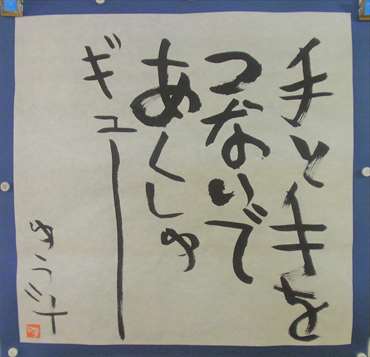 手と手を
つないで
あくしゅ
ギュー